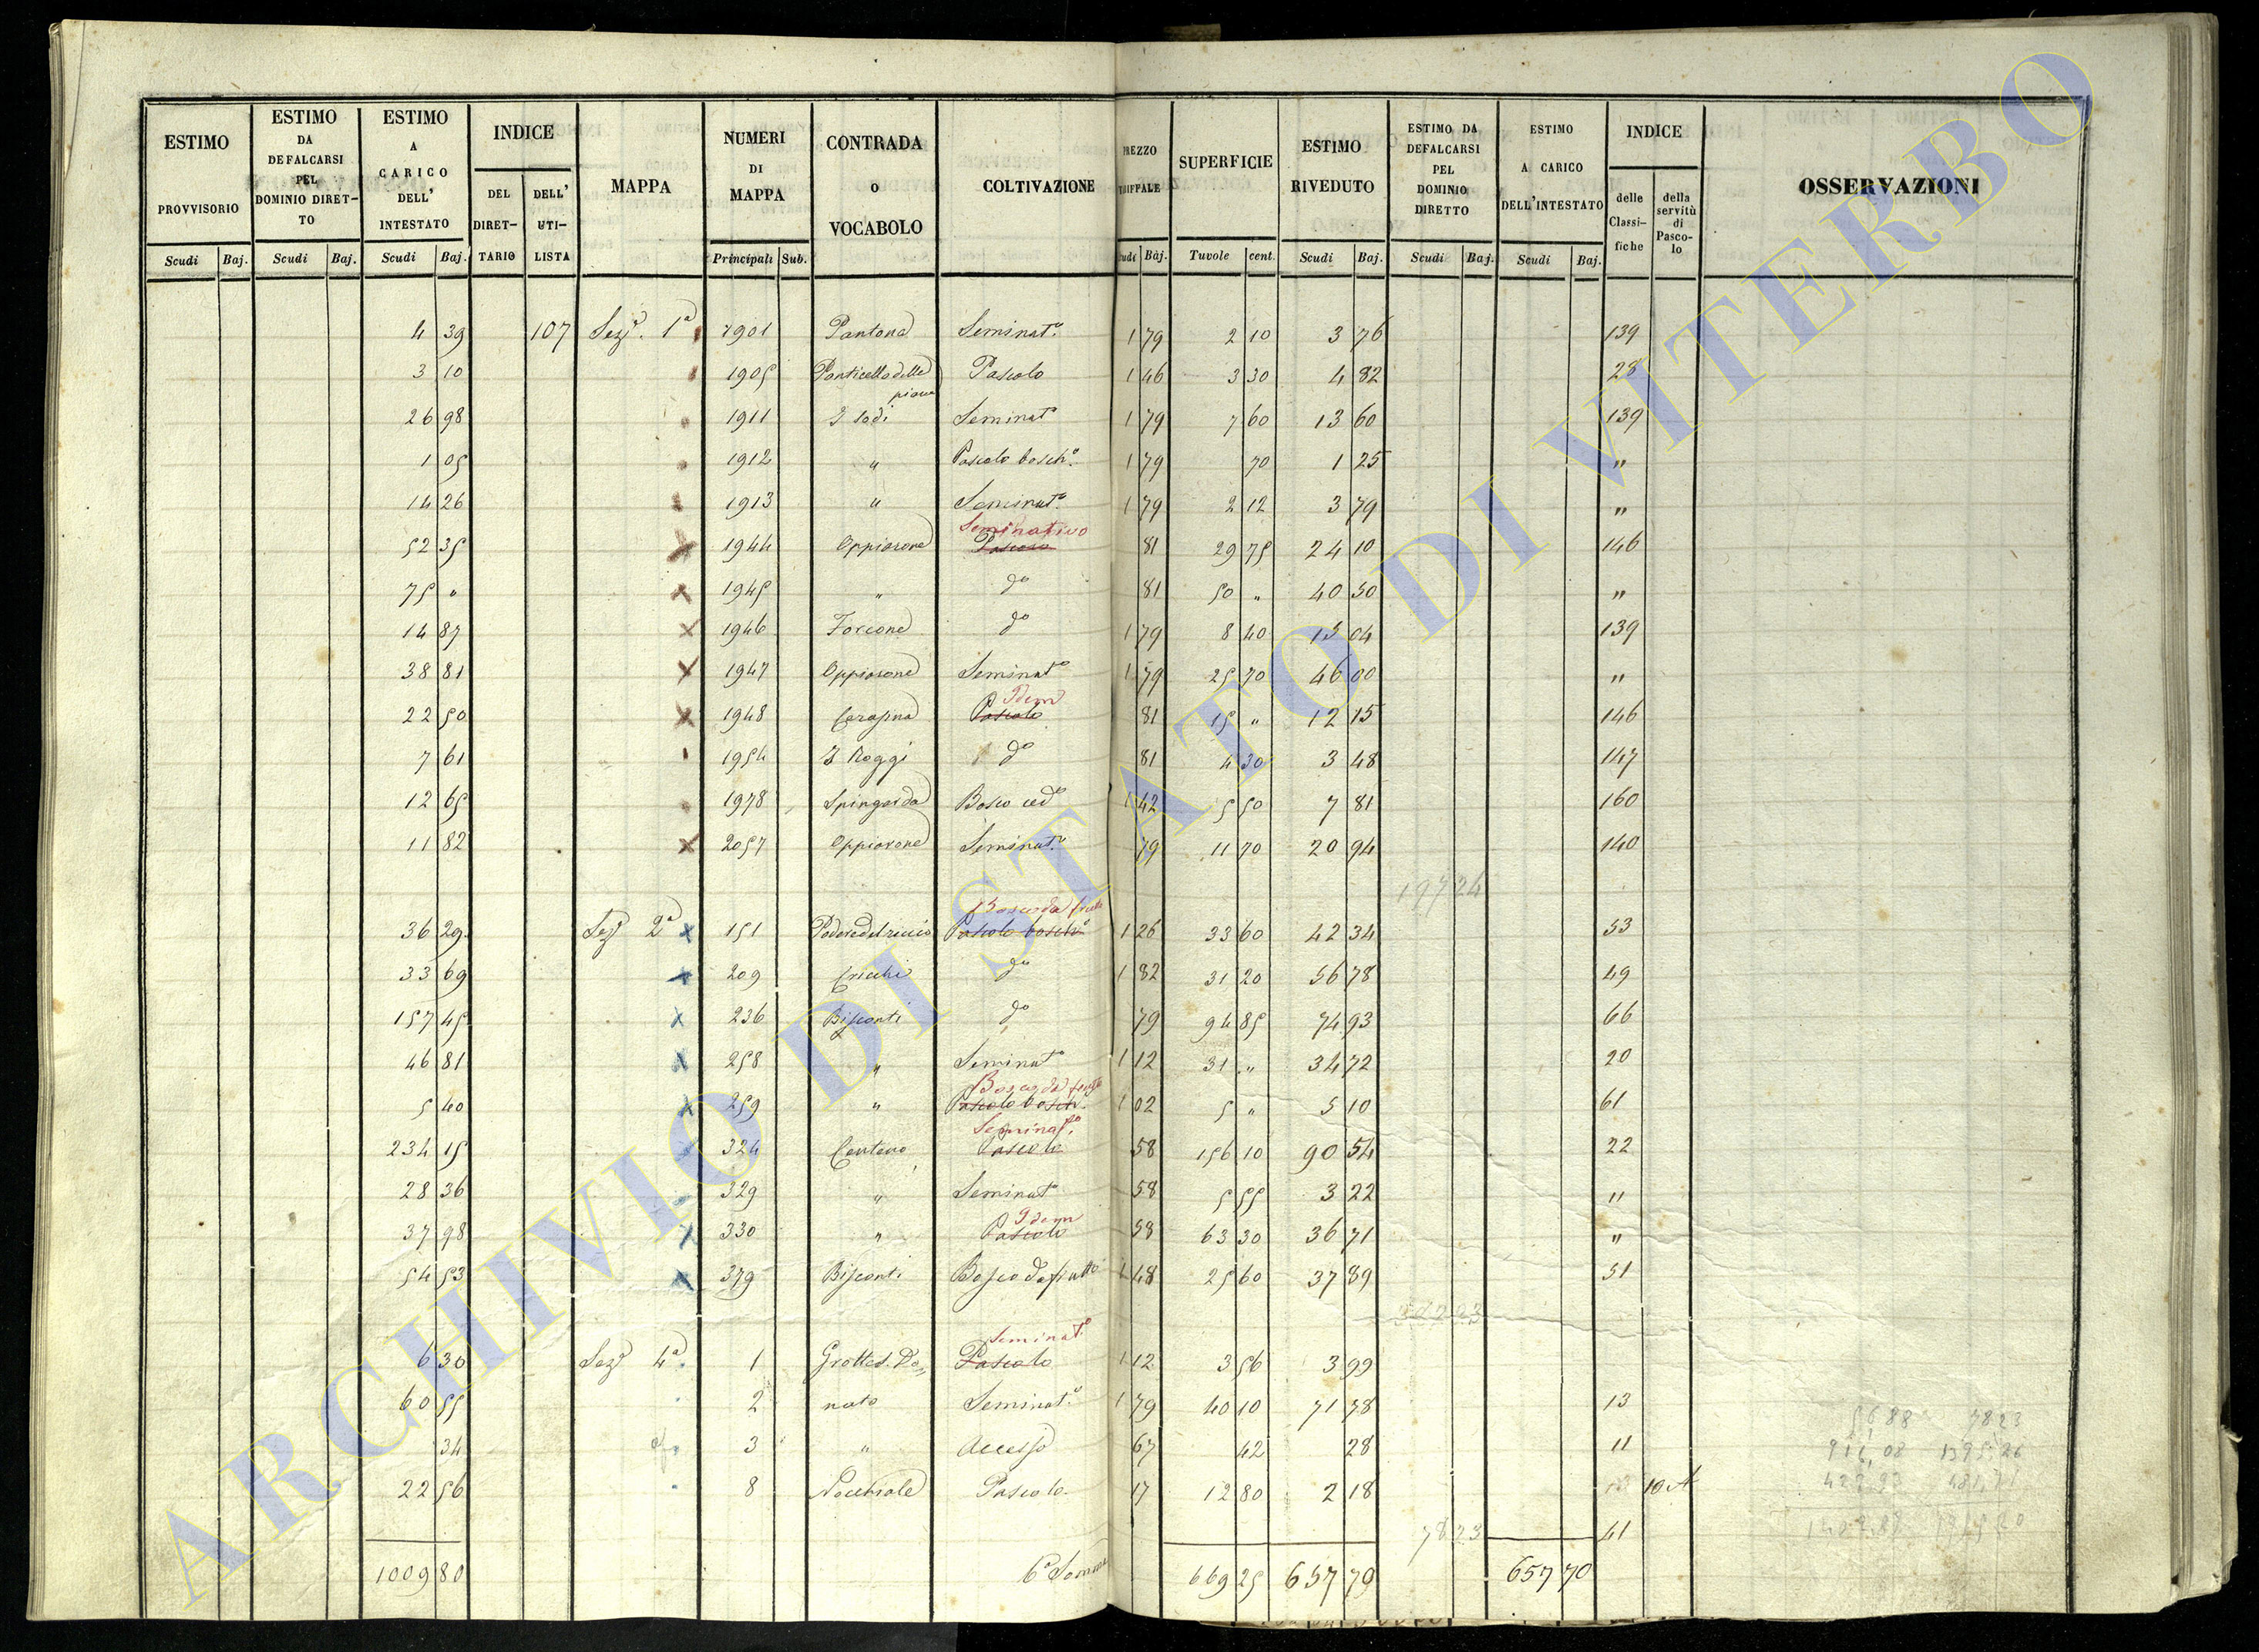 ESTIMO PROVVISORIO
ESTIMO DA DEFALCARSI PEL DOMINIO DIRETTO
ESTIMO A CARICO DELL' INTESTATO
INDICE
DEL DIRETTARIO
DELL' UTILISTA
MAPPA
NUMERI DI MAPPA
CONTRADA O VOCABOLO
COLTIVAZIONE
PREZZO TARIFFALE
SUPERFICIE
ESTIMO RIVEDUTO
ESTIMO DA DEFALCARSI PEL DOMINIO DIRETTO
ESTIMO A CARICO DELL'INTESTATO
INDICE
delle Classifiche
della servitù di Pascolo
OSSERVAZIONI
Scudi Baj. Scudi Baj. Scudi Baj. Principali Sub. Scudi Baj. Tavole cent. Scudi Baj. Scudi Baj. Scudi Baj.
4 39 107 Sez. 1a 1901 Pantona Seminat.o 1 79 2 10 3 76 139
3 10 1905 Ponticello delle piane Pascolo 1 46 3 30 4 82 28
26 98 1911 I Sodi Seminat.o 1 79 7 60 13 60 139
1 05 1912 " Pascolo bosch.o 1 79 70 1 25 "
14 26 1913 " Seminat.o 1 79 2 12 3 79 "
52 35 1944 Oppiorone Pascolo Seminativo 81 29 75 24 10 146
75 " 1945 " do 81 50 " 40 50 "
14 87 1946 Forcone do 1 79 8 40 15 04 139
38 81 1947 Oppiorone Seminat.o 1 79 25 70 46 00 "
22 50 1948 Pascolo Idem 81 15 " 12 15 146
7 61 1954 I Roggi do 81 4 30 3 48 147
12 65 1978 Spingarda Bosco ced.o 1 42 5 50 7 81 160
11 82 2057 Oppiorone Seminat.o 79 11 70 20 94 140
197 24
36 29 Sez. 2a 151 Podere del riccio Pascolo bosch.o Bosco da frutto 1 26 33 60 42 34 53
33 69 209 do 1 82 31 20 56 78 49
157 45 236 Bisconti do 79 94 85 74 93 66
46 81 258 " Seminat.o 1 12 31 " 34 72 20
5 40 259 " Pascolo bosch.o Bosco da frutto 1 02 5 " 5 10 61
234 15 324 Centeno Pascolo Seminat.o 58 156 10 90 54 22
28 36 329 " Seminat.o 58 5 55 3 22 "
37 98 330 " Pascolo Idem 58 63 30 36 71 "
54 53 379 Bisconti Bosco da frutto 1 48 25 60 37 89 51
6 30 Sez. 4a 1 Grotte d. Do= Pascolo Seminat.o 1 12 3 56 3 99
60 55 2 nato Seminat.o 1 79 40 10 71 78 13
34 3 " Accesso 67 42 28 11
22 56 8 Pascolo 17 12 80 2 18 10 A
78 23 41
1009 80 6a Somma 669 25 657 79 657 70
78 23
ARCHIVIO DI STATO DI VITERBO